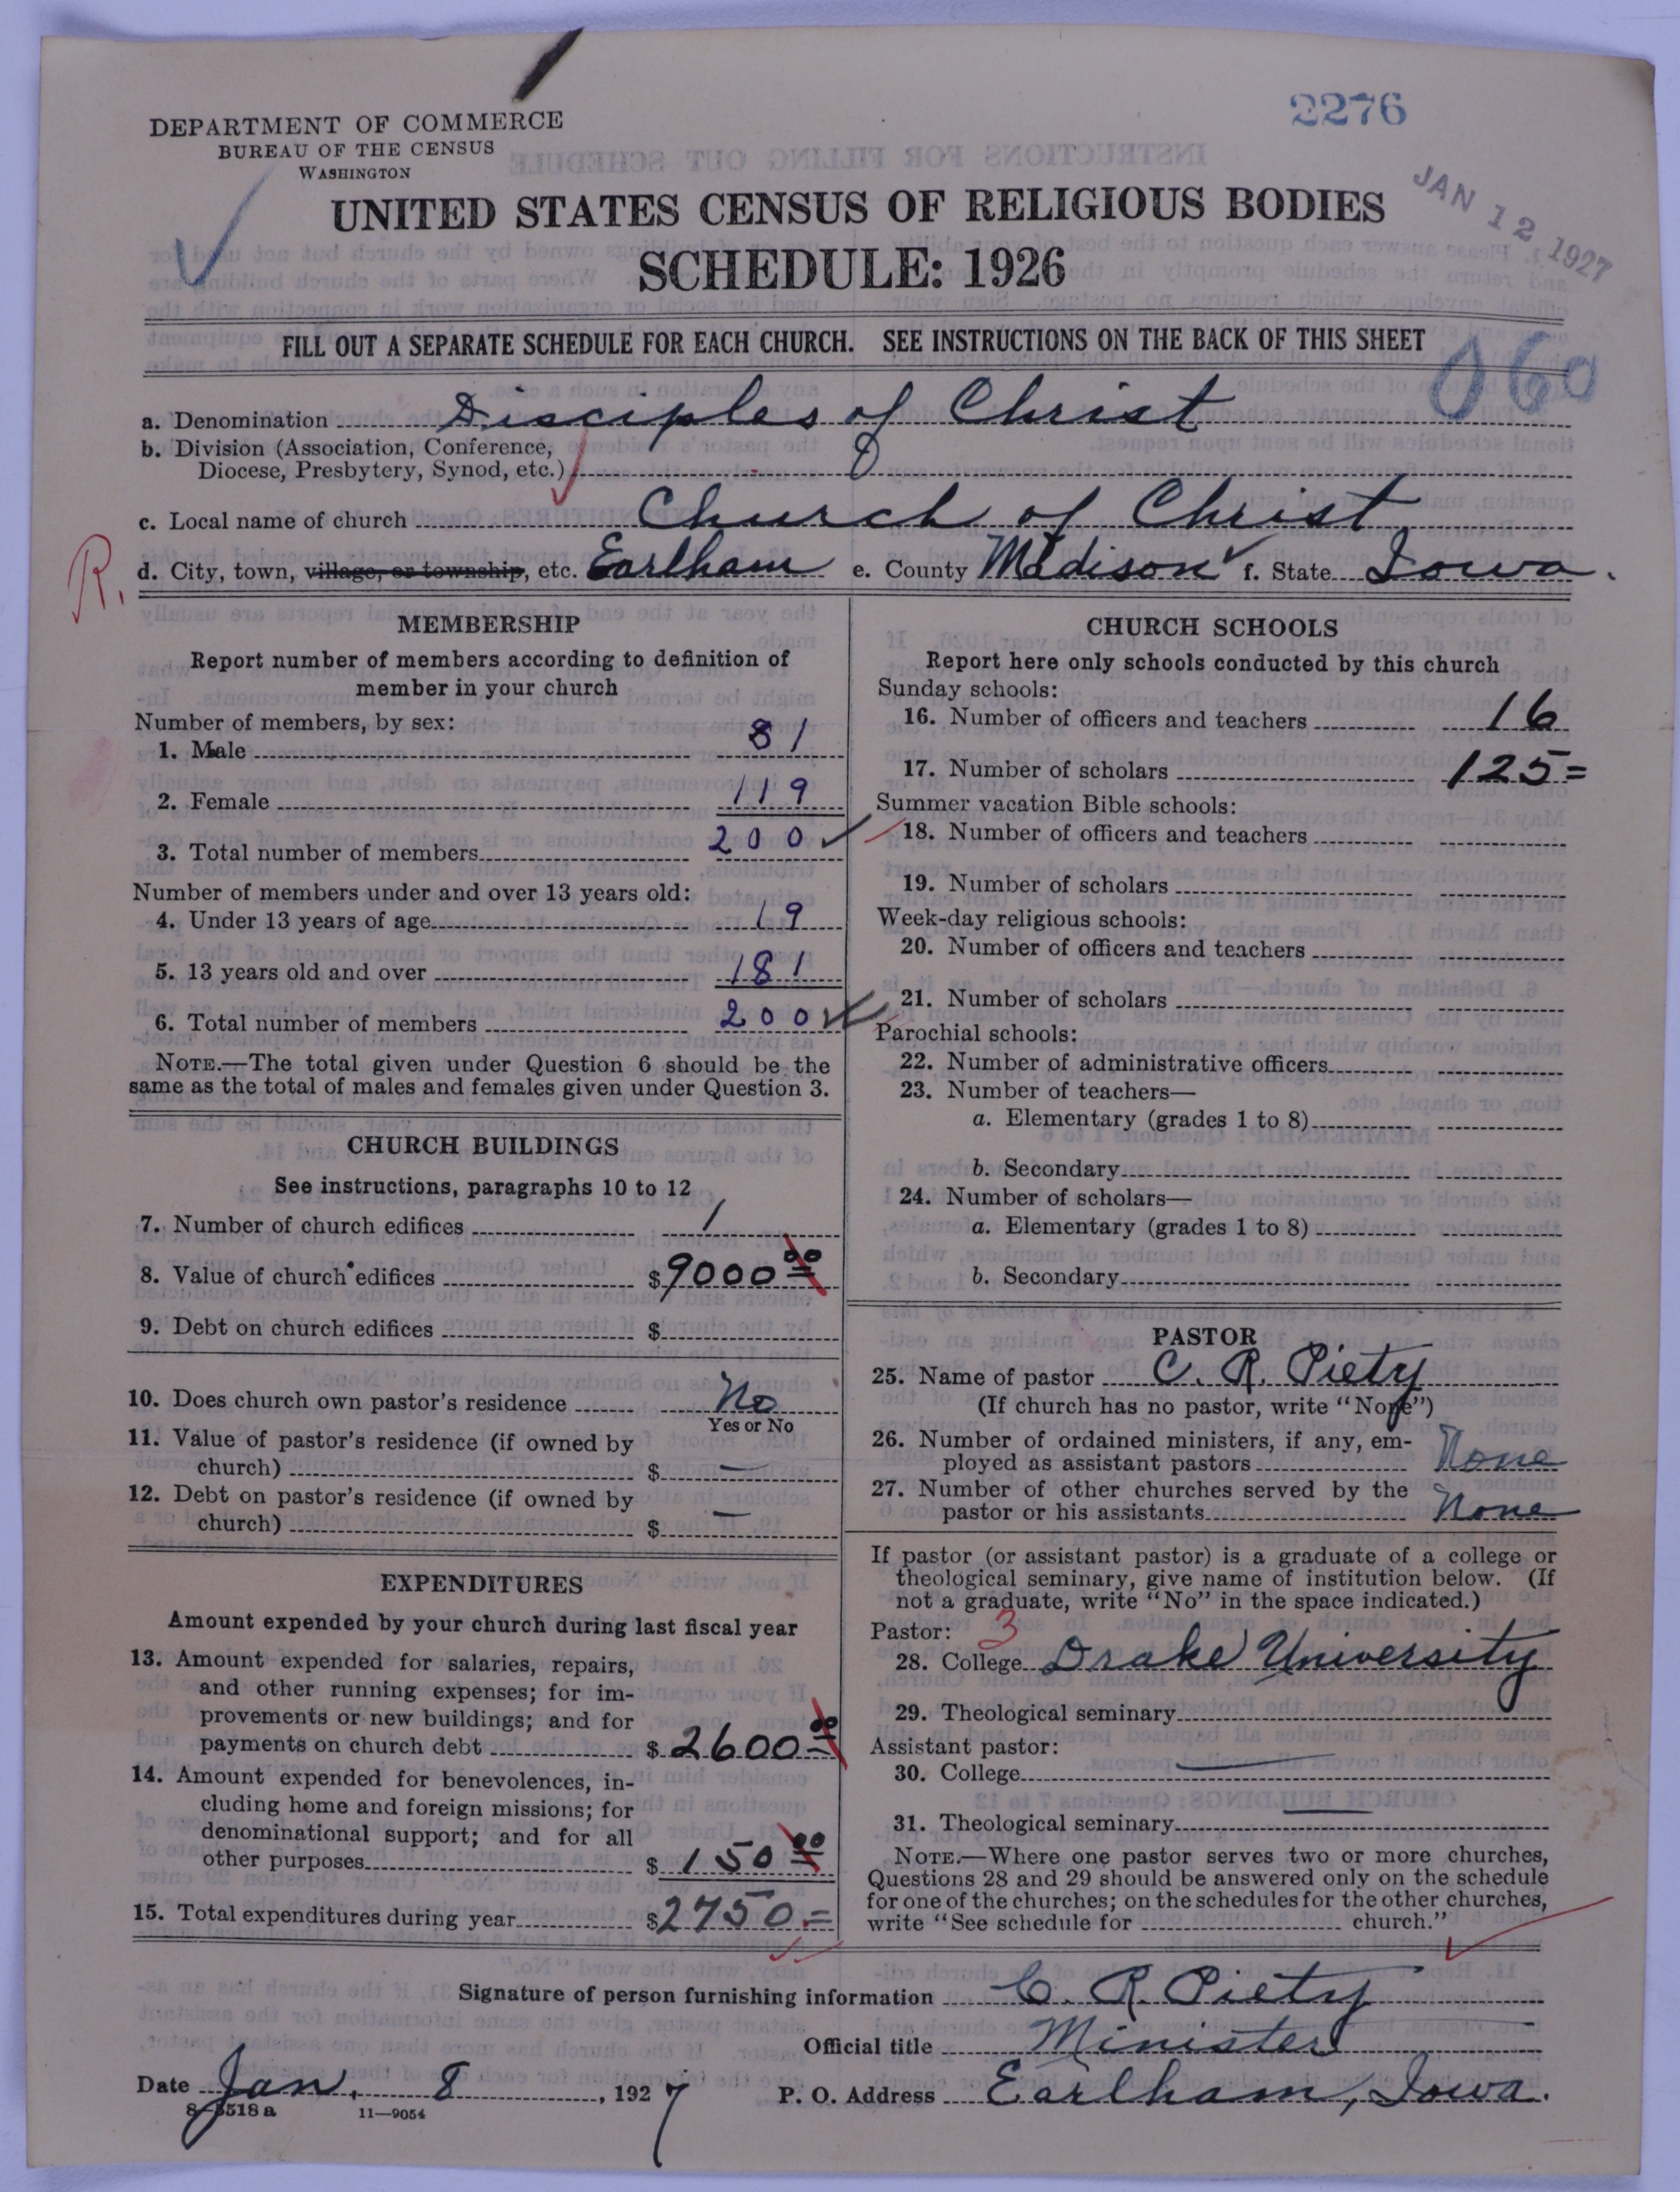 2276
DEPARTMENT OF COMMERCE
BUREAU OF THE CENSUS
WASHINGTON
JAN 12 1927
UNITED STATES CENSUS OF RELIGIOUS BODIES
SCHEDULE: 1926
FILL OUT A SEPARATE SCHEDULE FOR EACH CHURCH. SEE INSTRUCTIONS ON THE BACK OF THIS SHEET
060
a. Denomination Disciples of Christ
b. Division (Association, Conference,
Diocese, Presbytery, Synod, etc.)
c. Local name of church Church of Christ
R.
d. City, town, village, or township, etc. Earlham e. County Madison f. State Iowa.
MEMBERSHIP
Report number of members according to definition of
member in your church
Number of members, by sex:
1. Male 81
2. Female 119
3. Total number of members 200
Number of members under and over 13 years old:
4. Under 13 years of age 19
5. 13 years old and over 181
6. Total number of members 200
NOTE.—The total given under Question 6 should be the
same as the total of males and females given under Question 3.
CHURCH BUILDINGS
See instructions, paragraphs 10 to 12
7. Number of church edifices 1
8. Value of church edifices $9000 00
9. Debt on church edifices $
10. Does church own pastor's residence No
Yes or No
11. Value of pastor's residence (if owned by
church) $ —
12. Debt on pastor's residence (if owned by
church) $ —
EXPENDITURES
Amount expended by your church during last fiscal year
13. Amount expended for salaries, repairs,
and other running expenses; for im-
provements or new buildings; and for
payments on church debt $ 2600 00
14. Amount expended for benevolences, in-
cluding home and foreign missions; for
denominational support; and for all
other purposes $ 150 00
15. Total expenditures during year $2750.=
CHURCH SCHOOLS
Report here only schools conducted by this church
Sunday schools:
16. Number of officers and teachers 16
17. Number of scholars 125=
Summer vacation Bible schools:
18. Number of officers and teachers
19. Number of scholars
Week-day religious schools:
20. Number of officers and teachers
21. Number of scholars
Parochial schools:
22. Number of administrative officers
23. Number of teachers—
a. Elementary (grades 1 to 8)
b. Secondary
24. Number of scholars—
a. Elementary (grades 1 to 8)
b. Secondary
PASTOR
25. Name of pastor C. R. Piety
(If church has no pastor, write "None")
26. Number of ordained ministers, if any, em-
ployed as assistant pastors None
27. Number of other churches served by the
pastor or his assistants None
If pastor (or assistant pastor) is a graduate of a college or
theological seminary, give name of institution below. (If
not a graduate, write "No" in the space indicated.)
Pastor: 3
28. College Drake University
29. Theological seminary
Assistant pastor:
30. College —
31. Theological seminary —
NOTE.—Where one pastor serves two or more churches,
Questions 28 and 29 should be answered only on the schedule
for one of the churches; on the schedules for the other churches,
write "See schedule for church."
Signature of person furnishing information C. R. Piety
Official title Minister
Date Jan. 8, 1927 P. O. Address Earlham, Iowa.
8-5518 a 11—9054